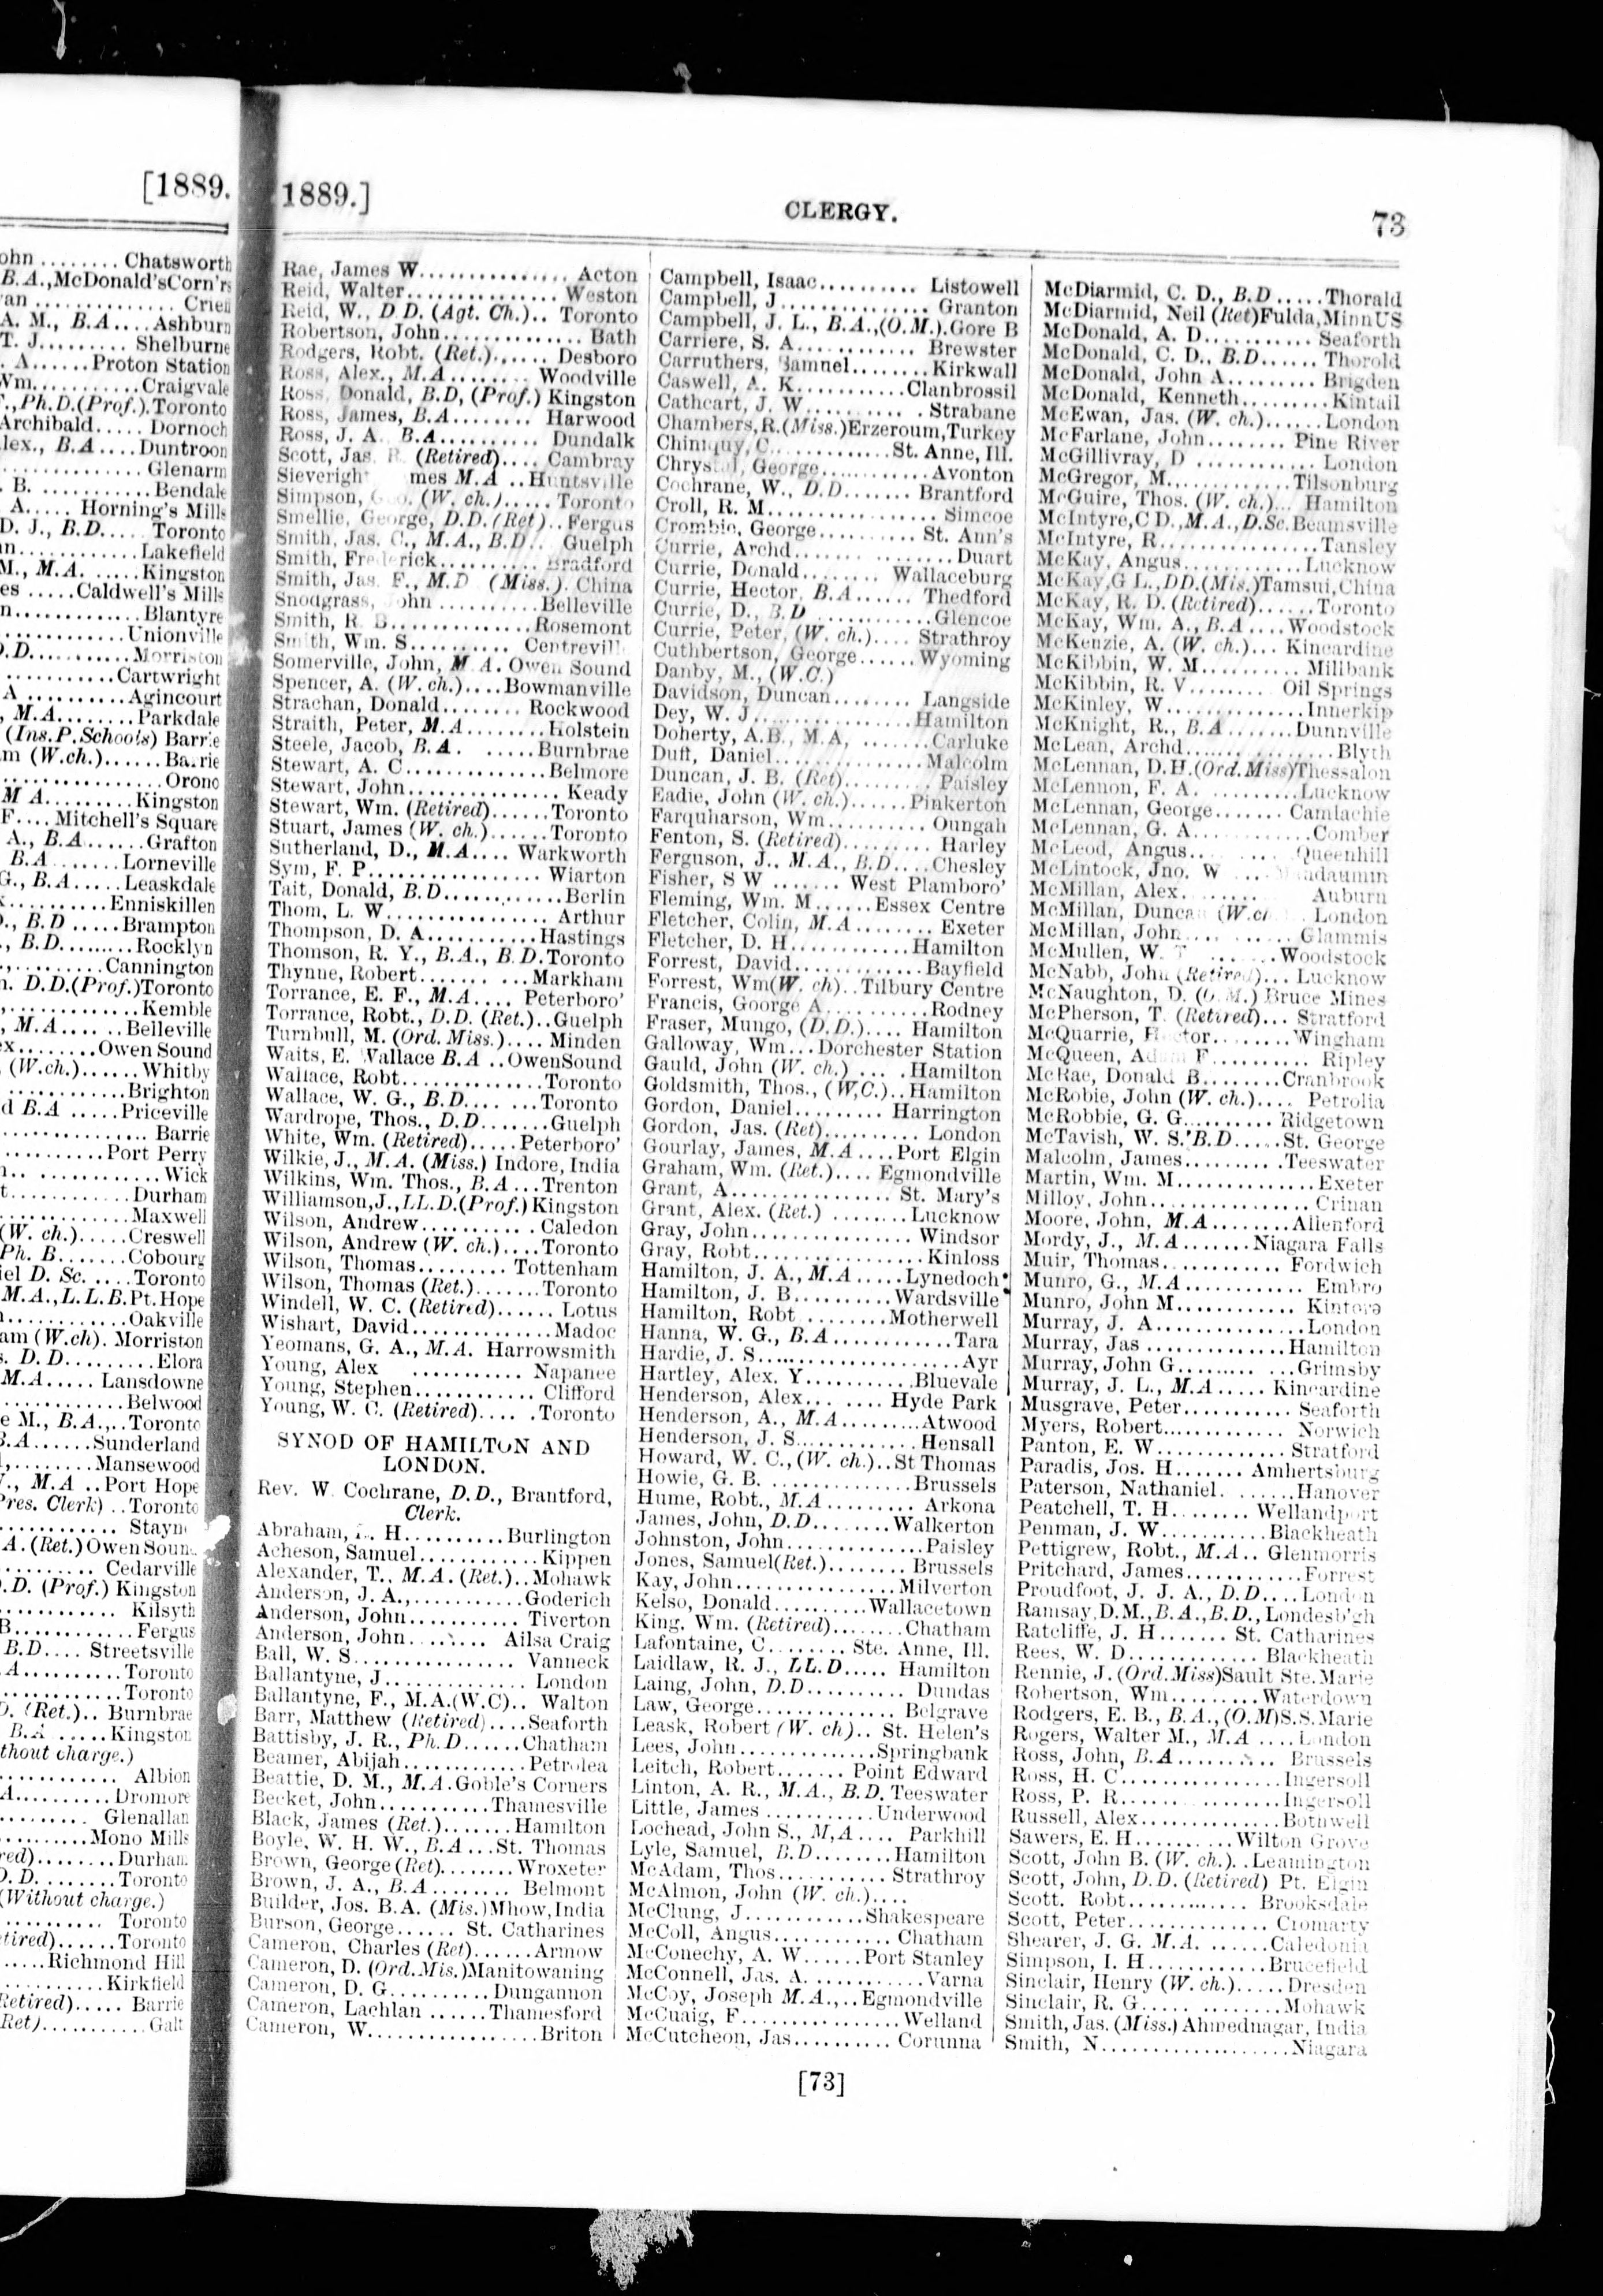 [1889.
ohn ........ Chatsworth
B.A.,McDonald'sCorn'rs
an ............. Crieff
A. M., B.A.... Ashburn
T. J......... Shelburne
. A...... Proton Station
Wm............ Craigvale
., Ph.D.(Prof.).Toronto
Archibald..... Dornoch
lex., B.A.... Duntroon
............... Glenarm
. B. ............ Bendale
A..... Horning's Mills
D. J., B.D..... Toronto
n............. Lakefield
M., M.A. ...... Kingston
es ..... Caldwell's Mills
n.............. Blantyre
.............. Unionville
.D........... Morriston
............ Cartwright
A .......... Agincourt
, M.A........ Parkdale
(Ins.P.Schools) Barrie
m (W.ch.)...... Barrie
................ Orono
M A......... Kingston
F.... Mitchell's Square
A., B.A....... Grafton
B.A ....... Lorneville
G., B.A..... Leaskdale
........... Enniskillen
., B.D ..... Brampton
., B.D........ Rocklyn
,.......... Cannington
n. D.D.(Prof.)Toronto
,............... Kemble
, M.A...... Belleville
ex........ Owen Sound
(W.ch.)...... Whitby
.............. Brighton
d B.A ..... Priceville
................ Barrie
............ Port Perry
................ Wick
t............. Durham
.............. Maxwell
(W. ch.)..... Creswell
Ph. B........ Cobourg
iel D. Sc. .... Toronto
M.A., L.L.B. Pt. Hope
............. Oakville
am (W.ch). Morriston
s. D. D......... Elora
M.A..... Lansdowne
............. Belwood
e M., B.A.,.. Toronto
B.A...... Sunderland
,......... Mansewood
., M.A .. Port Hope
Pres. Clerk) .. Toronto
............ Stayner
A. (Ret.) Owen Sound
.......... Cedarville
.D. (Prof.) Kingston
............ Kilsyth
B............ Fergus
B.D.... Streetsville
A........... Toronto
............. Toronto
D. (Ret.).. Burnbrae
B.A ..... Kingston
thout charge.)
............. Albion
A.......... Dromore
.......... Glenallan
.......... Mono Mills
red)........ Durham
D. D........ Toronto
(Without charge.)
.......... Toronto
tired)...... Toronto
..... Richmond Hill
........... Kirkfield
Retired)..... Barrie
Ret)........... Galt
1889.] CLERGY. 73
Rae, James W............... Acton
Reid, Walter................ Weston
Reid, W., D.D. (Agt. Ch.).. Toronto
Robertson, John.............. Bath
Rodgers, Robt. (Ret.)...... Desboro
Ross, Alex., M.A......... Woodville
Ross, Donald, B.D, (Prof.) Kingston
Ross, James, B.A........ Harwood
Ross, J. A. B.A.......... Dundalk
Scott, Jas. R. (Retired).... Cambray
Sieveright mes M.A .. Huntsville
Simpson, Geo. (W. ch.)..... Toronto
Smellie, George, D.D. (Ret).. Fergus
Smith, Jas. C., M.A., B.D.. Guelph
Smith, Frederick.......... Bradford
Smith, Jas. F., M.D. (Miss.). China
Snodgrass, John .......... Belleville
Smith, R. B.............. Rosemont
Smith, Wm. S.......... Centreville
Somerville, John, M.A. Owen Sound
Spencer, A. (W. ch.).... Bowmanville
Strachan, Donald........ Rockwood
Straith, Peter, M.A........ Holstein
Steele, Jacob, B.A. ..... Burnbrae
Stewart, A. C.............. Belmore
Stewart, John............... Keady
Stewart, Wm. (Retired)...... Toronto
Stuart, James (W. ch.)...... Toronto
Sutherland, D., M.A.... Warkworth
Sym, F. P................. Wiarton
Tait, Donald, B.D............ Berlin
Thom, L. W................ Arthur
Thompson, D. A........... Hastings
Thomson, R. Y., B.A., B.D.Toronto
Thynne, Robert.......... Markham
Torrance, E. F., M.A.... Peterboro'
Torrance, Robt., D.D. (Ret.)..Guelph
Turnbull, M. (Ord. Miss.).... Minden
Waits, E. Wallace B.A ..OwenSound
Wallace, Robt.............. Toronto
Wallace, W. G., B.D....... Toronto
Wardrope, Thos., D.D....... Guelph
White, Wm. (Retired)..... Peterboro'
Wilkie, J., M.A. (Miss.) Indore, India
Wilkins, Wm. Thos., B.A... Trenton
Williamson,J.,LL.D.(Prof.)Kingston
Wilson, Andrew............ Caledon
Wilson, Andrew (W. ch.).... Toronto
Wilson, Thomas......... Tottenham
Wilson, Thomas (Ret.)....... Toronto
Windell, W. C. (Retired)...... Lotus
Wishart, David.............. Madoc
Yeomans, G. A., M.A. Harrowsmith
Young, Alex ........... Napanee
Young, Stephen............ Clifford
Young, W. C. (Retired)..... Toronto
SYNOD OF HAMILTON AND
LONDON.
Rev. W. Cochrane, D.D., Brantford,
Clerk.
Abraham, R. H.......... Burlington
Acheson, Samuel............ Kippen
Alexander, T., M.A. (Ret.).. Mohawk
Anderson, J. A.,........... Goderich
Anderson, John........... Tiverton
Anderson, John........ Ailsa Craig
Ball, W. S................ Vanneck
Ballantyne, J.............. London
Ballantyne, F., M.A.(W.C).. Walton
Barr, Matthew (Retired).... Seaforth
Battisby, J. R., Ph.D...... Chatham
Beamer, Abijah............ Petrolea
Beattie, D. M., M.A.Goble's Corners
Becket, John........... Thamesville
Black, James (Ret.)....... Hamilton
Boyle, W. H. W., B.A... St. Thomas
Brown, George (Ret)....... Wroxeter
Brown, J. A., B.A........ Belmont
Builder, Jos. B.A. (Mis.)Mhow,India
Burson, George...... St. Catharines
Cameron, Charles (Ret)...... Armow
Cameron, D. (Ord.Mis.)Manitowaning
Cameron, D. G.......... Dungannon
Cameron, Lachlan ...... Thamesford
Cameron, W................. Briton
Campbell, Isaac.......... Listowell
Campbell, J............... Granton
Campbell, J. L., B.A.,(O.M.).Gore B
Carriere, S. A............ Brewster
Carruthers, Samuel........ Kirkwall
Caswell, A. K........... Clanbrossil
Cathcart, J. W............ Strabane
Chambers,R.(Miss.)Erzeroum,Turkey
Chiniquy, C............ St. Anne, Ill.
Chrystal, George........... Avonton
Cochrane, W., D.D....... Brantford
Croll, R. M................. Simcoe
Crombie, George.......... St. Ann's
Currie, Archd................ Duart
Currie, Donald........ Wallaceburg
Currie, Hector, B.A...... Thedford
Currie, D., B.D ............ Glencoe
Currie, Peter, (W. ch.).... Strathroy
Cuthbertson, George...... Wyoming
Danby, M., (W.C.)
Davidson, Duncan........ Langside
Dey, W. J................ Hamilton
Doherty, A.B., M.A, ....... Carluke
Duff, Daniel............... Malcolm
Duncan, J. B. (Ret)......... Paisley
Eadie, John (W. ch.)...... Pinkerton
Farquharson, Wm.......... Oungah
Fenton, S. (Retired)......... Harley
Ferguson, J., M.A., B.D.... Chesley
Fisher, S W ....... West Flamboro'
Fleming, Wm. M...... Essex Centre
Fletcher, Colin, M.A........ Exeter
Fletcher, D. H............ Hamilton
Forrest, David............. Bayfield
Forrest, Wm(W. ch).. Tilbury Centre
Francis, Goorge A........... Rodney
Fraser, Mungo, (D.D.).... Hamilton
Galloway, Wm... Dorchester Station
Gauld, John (W. ch.) ... . Hamilton
Goldsmith, Thos., (W,C.).. Hamilton
Gordon, Daniel......... Harrington
Gordon, Jas. (Ret).......... London
Gourlay, James, M.A.... Port Elgin
Graham, Wm. (Ret.).... Egmondville
Grant, A................ St. Mary's
Grant, Alex. (Ret.) ........ Lucknow
Gray, John................ Windsor
Gray, Robt................. Kinloss
Hamilton, J. A., M.A..... Lynedoch
Hamilton, J. B.......... Wardsville
Hamilton, Robt......... Motherwell
Hanna, W. G., B.A............ Tara
Hardie, J. S................... Ayr
Hartley, Alex. Y........... Bluevale
Henderson, Alex........ Hyde Park
Henderson, A., M.A......... Atwood
Henderson, J. S............. Hensall
Howard, W. C., (W. ch.)..St Thomas
Howie, G. B. .............. Brussels
Hume, Robt., M.A......... Arkona
James, John, D.D........ Walkerton
Johnston, John.............. Paisley
Jones, Samuel(Ret.)........ Brussels
Kay, John................ Milverton
Kelso, Donald.......... Wallacetown
King, Wm. (Retired)....... Chatham
Lafontaine, C........ Ste. Anne, Ill.
Laidlaw, R. J., LL.D..... Hamilton
Laing, John, D.D.......... Dundas
Law, George............... Belgrave
Leask, Robert (W. ch).. St. Helen's
Lees, John.............. Springbank
Leitch, Robert....... Point Edward
Linton, A. R., M.A., B.D. Teeswater
Little, James ........... Underwood
Lochead, John S., M,A.... Parkhill
Lyle, Samuel, B.D........ Hamilton
McAdam, Thos........... Strathroy
McAlmon, John (W. ch.)....
McClung, J............ Shakespeare
McColl, Angus............ Chatham
McConechy, A. W...... Port Stanley
McConnell, Jas. A............ Varna
McCoy, Joseph M.A.,.. Egmondville
McCuaig, F................ Welland
McCutcheon, Jas.......... Corunna
McDiarmid, C. D., B.D..... Thorald
McDiarmid, Neil (Ret)Fulda,MinnUS
McDonald, A. D........... Seaforth
McDonald, C. D., B.D...... Thorold
McDonald, John A......... Brigden
McDonald, Kenneth......... Kintail
McEwan, Jas. (W. ch.)...... London
McFarlane, John........ Pine River
McGillivray, D ............ London
McGregor, M............ Tilsonburg
McGuire, Thos. (W. ch.)... Hamilton
McIntyre,C D.,M.A.,D.Sc.Beamsville
McIntyre, R................ Tansley
McKay, Angus............ Lucknow
McKay,G L.,DD.(Mis.)Tamsui,China
McKay, R. D. (Retired)...... Toronto
McKay, Wm. A., B.A.... Woodstock
McKenzie, A. (W. ch.)... Kincardine
McKibbin, W. M.......... Millbank
McKibbin, R. V........ Oil Springs
McKinley, W.............. Innerkip
McKnight, R., B.A....... Dunnville
McLean, Archd............... Blyth
McLennan, D.H.(Ord.Miss)Thessalon
McLennon, F. A. ......... Lucknow
McLennan, George....... Camlachie
McLennan, G. A............ Comber
McLeod, Angus.......... Queenhill
McLintock, Jno. W ....
McMillan, Alex......... Auburn
McMillan, Duncan (W.ch London
McMillan, John........... Glammis
McMullen, W. T ....... Woodstock
McNabb, John (Retired)... Lucknow
McNaughton, D. (O.M.) Bruce Mines
McPherson, T. (Retired)... Stratford
McQuarrie, Hector........ Wingham
McQueen, Adam F.......... Ripley
McRae, Donald B........ Cranbrook
McRobie, John (W. ch.).... Petrolia
McRobbie, G. G.......... Ridgetown
McTavish, W. S. B.D..... St. George
Malcolm, James.......... Teeswater
Martin, Wm. M............. Exeter
Milloy, John................ Crinan
Moore, John, M.A........ Allenford
Mordy, J., M.A....... Niagara Falls
Muir, Thomas............ Fordwich
Munro, G., M.A............ Embro
Munro, John M............ Kintore
Murray, J. A............... London
Murray, Jas .............. Hamilton
Murray, John G........... Grimsby
Murray, J. L., M.A..... Kincardine
Musgrave, Peter........... Seaforth
Myers, Robert............ Norwich
Panton, E. W............. Stratford
Paradis, Jos. H....... Amhertsburg
Paterson, Nathaniel. ...... Hanover
Peatchell, T. H........ Wellandport
Penman, J. W........... Blackheath
Pettigrew, Robt., M.A.. Glenmorris
Pritchard, James............ Forrest
Proudfoot, J. J. A., D.D.... London
Ramsay,D.M.,B.A.,B.D.,Londesb'gh
Ratcliffe, J. H....... St. Catharines
Rees, W. D............. Blackheath
Rennie, J. (Ord.Miss)Sault Ste.Marie
Robertson, Wm......... Waterdown
Rodgers, E. B., B.A.,(O.M)S.S.Marie
Rogers, Walter M., M.A .... London
Ross, John, B.A.......... Brussels
Ross, H. C................ Ingersoll
Ross, P. R................ Ingersoll
Russell, Alex.............. Bothwell
Sawers, E. H.......... Wilton Grove
Scott, John B. (W. ch.). .Leamington
Scott, John, D.D. (Retired) Pt. Elgin
Scott. Robt............ Brooksdale
Scott, Peter.............. Cromarty
Shearer, J. G. M.A. ...... Caledonia
Simpson, I. H............ Brucefield
Sinclair, Henry (W. ch.)..... Dresden
Sinclair, R. G.............. Mohawk
Smith, Jas. (Miss.) Ahmednagar, India
Smith, N................... Niagara
[73]